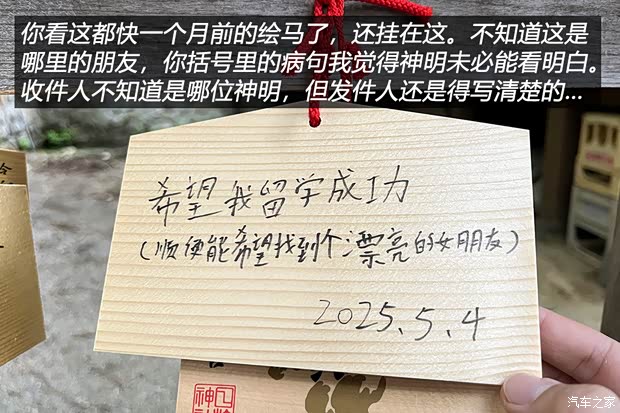 你看这都快一个月前的绘马了，还挂在这。不知道这是
哪里的朋友，你括号里的病句我觉得神明未必能看明白。
收件人不知道是哪位神明，但发件人还是得写清楚的...
希望我留学成功
（顺便能希望找到个漂亮的女朋友）
2025、5、4
神
汽车之家